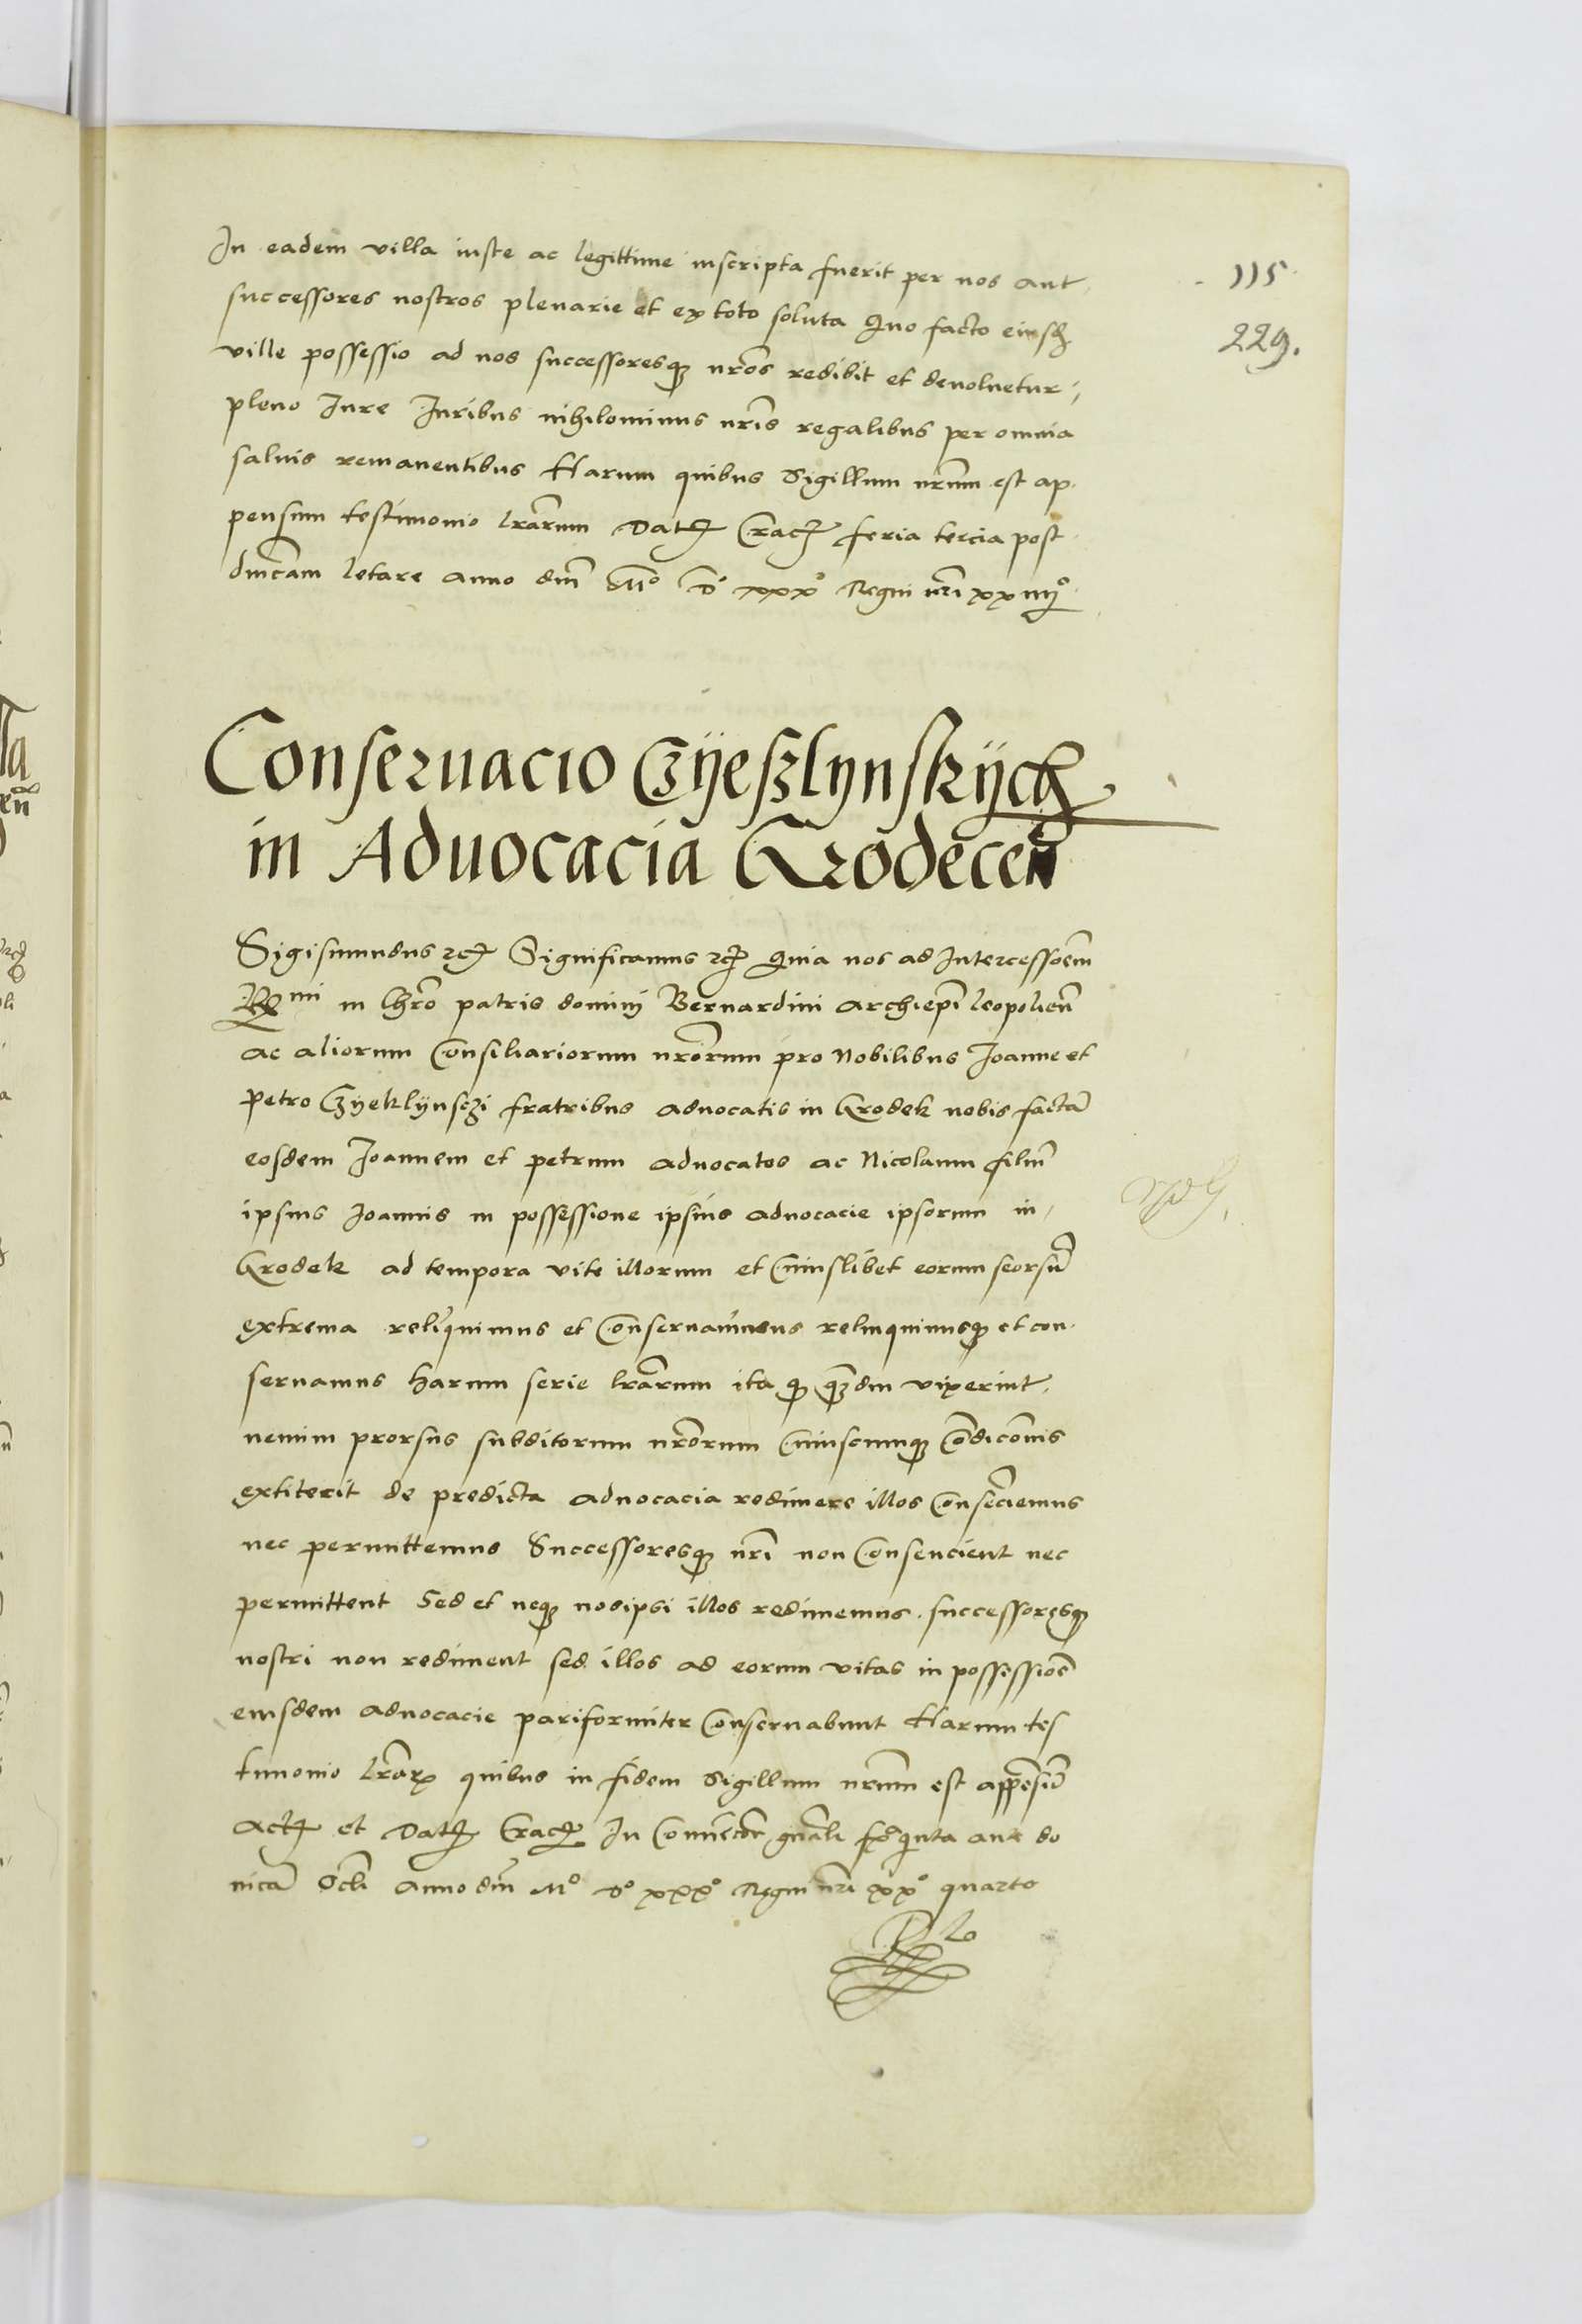 In eadem villa iuste ac legittime inscripta fuerit per nos aut
115
successores nostros plenarie et ex toto soluta Quo facto eiusdꝫ
229.
ville possessio ad nos successoresqꝫ nr̃os redibit et devoluetur
pleno Jure Juribus nihilominus nr̃is regalibus per omnia
salvis remanentibus Harum quibus Sigillum nr̃um est ap
pensum testimonio lr̃arum Datꝫ Cracꝫ feria tercia post
dnĩcam letare anno dnĩ Mº Dº xxxº Regni nr̃i xxiiijº
Conseruacio Czÿeszlynskÿch
in Aduocacia Grodeceñ
Sigismundus ꝛcꝫ Significamus ꝛcꝫ Quia nos ad Intercessioẽm
Rmi in Chr̃o patris domini Bernardini Archiepĩ leopolieñ
ac aliorum Consiliariorum nr̃orum pro Nobilibus Joanne et
petro Czÿeklÿnsczi fratribus aduocatis in Grodek nobis factã
eosdem Joannem et petrum aduocatos ac Nicolaum filiũ
ipsius Joannis in possessione ipsius aduocacie ipsorum in
Grodek ad tempora vite illorum et Cuiuslibet eorum seorsũ
extrema reliquimus et Conseruauimus relinquimusqꝫ et con
seruamus harum serie lr̃arum ita qꝫ quãdiu vixerint
nemini prorsus subditorum nr̃orum Cuiuscumqꝫ Cõdicõnis
extiterit de predicta aduocacia redimere illos Consẽciemus
nec permittemus Successoresqꝫ nr̃i non Consencient nec
permittent Sed et neqꝫ nosipsi illos redimemus successoresqꝫ
nostri non rediment sed illos ad eorum vitas in possessioẽ
eiusdem aduocacie pariformiter Conseruabunt Harum tes
timonio lr̃arꝝ quibus in fidem Sigillum nr̃um est appẽsũ
Actꝫ et Datꝫ Cracꝫ In Conuẽcõe gñali fe Quinta ante do
nicã Ocli Anno dnĩ Mº Dº xxxº Regni nr̃i xxº quarto